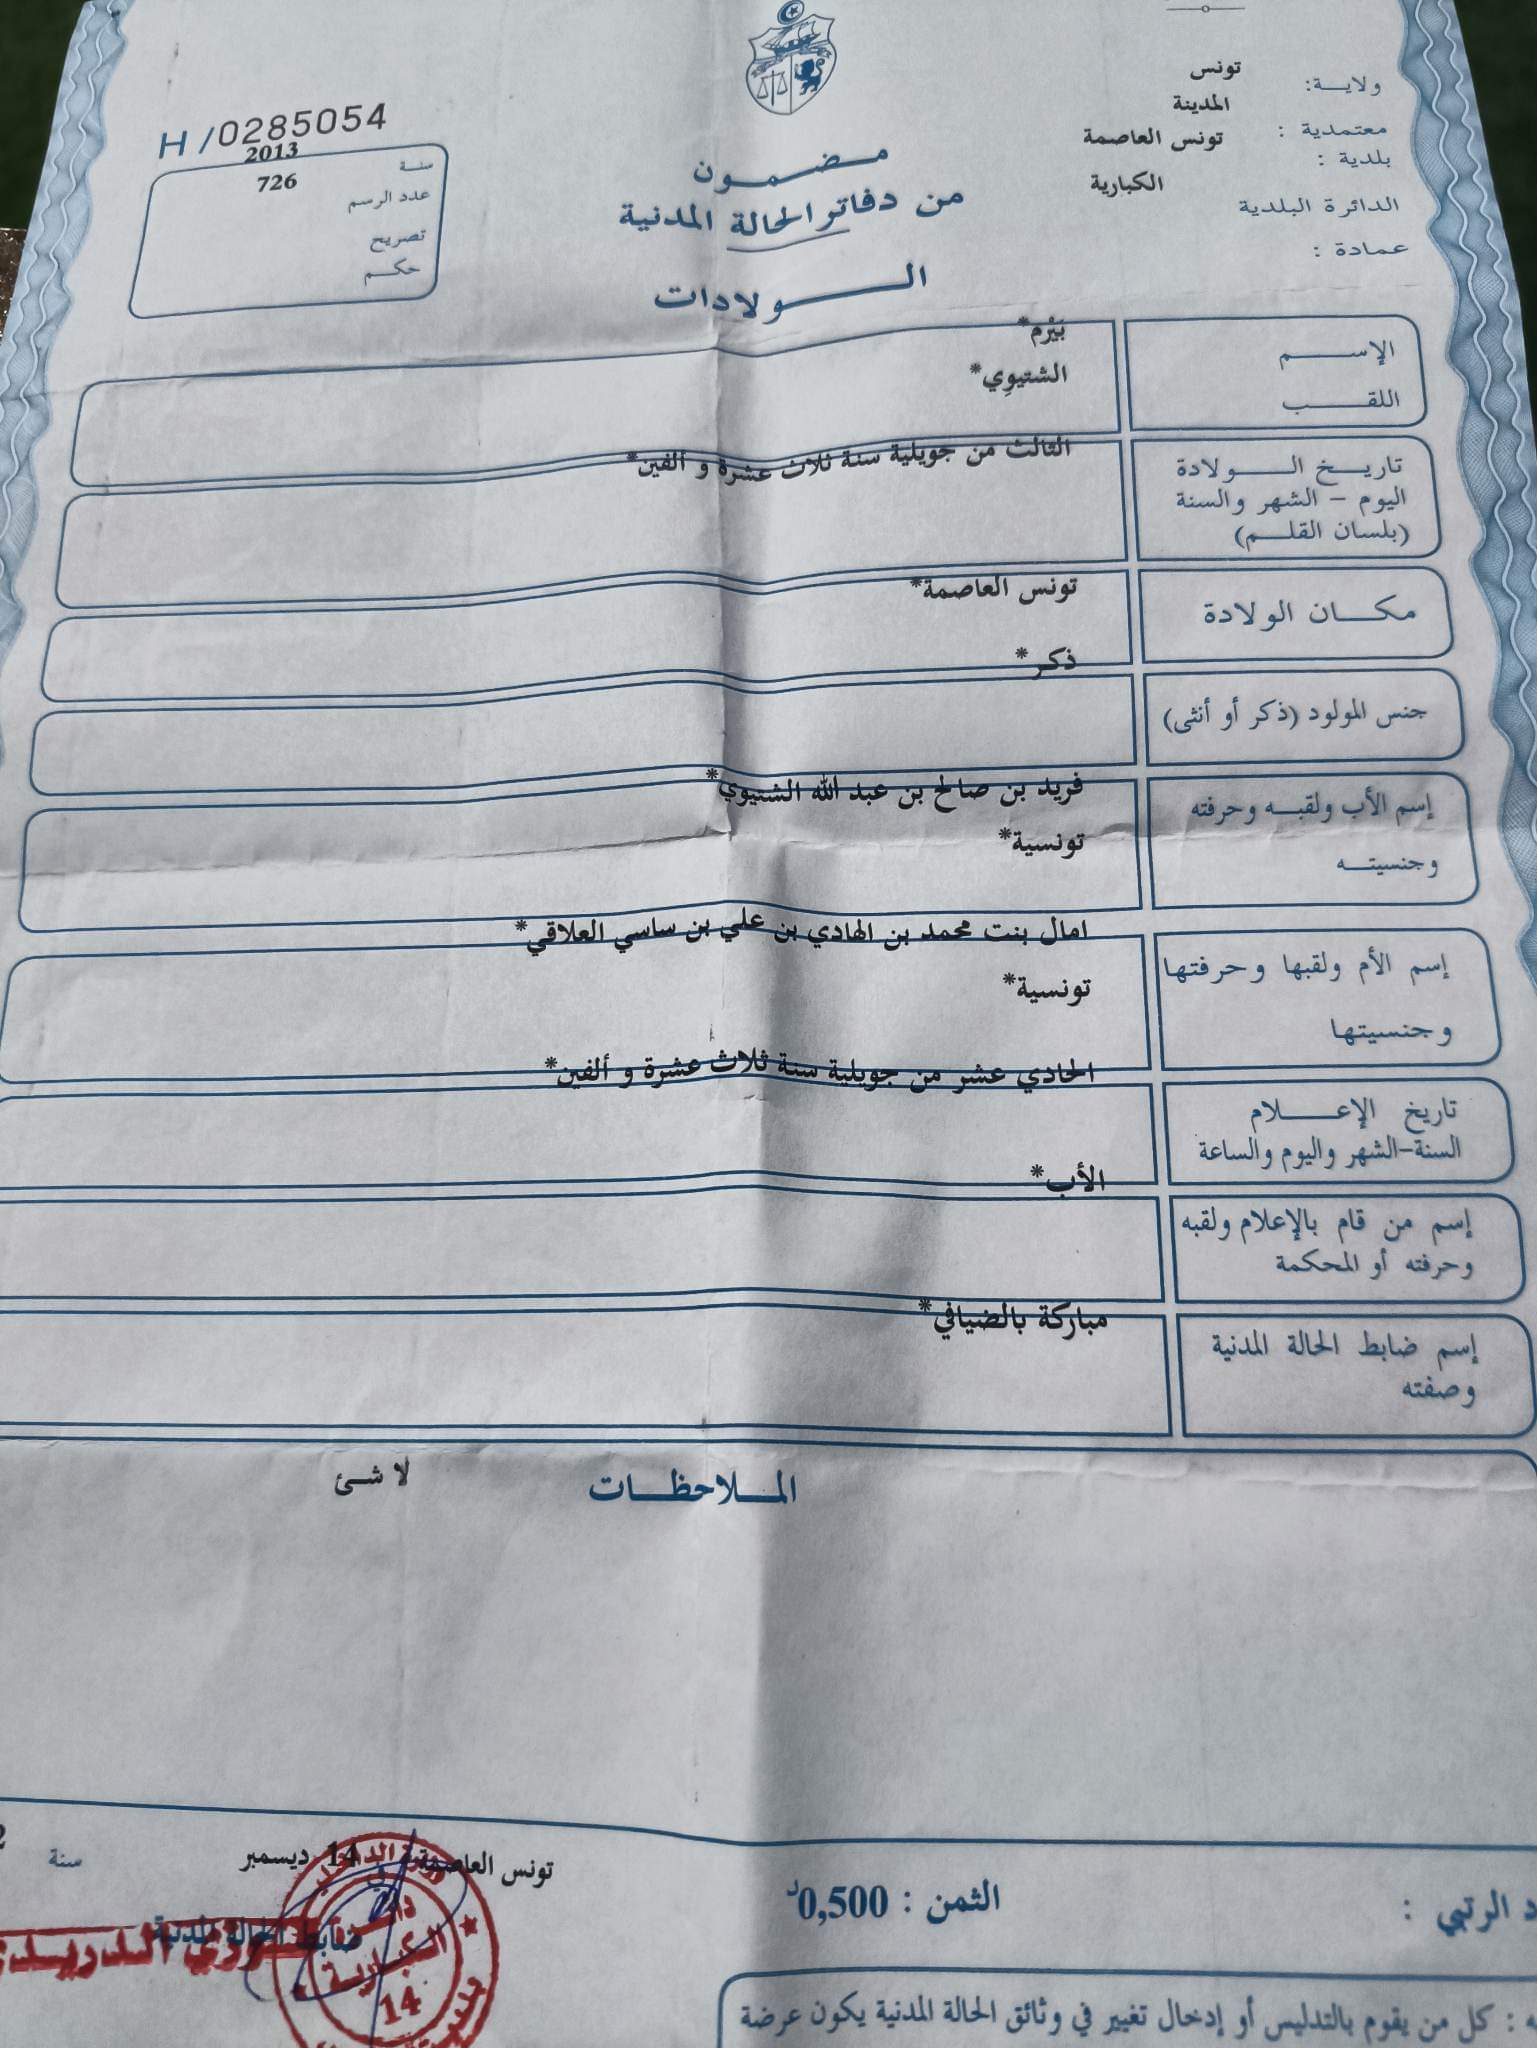 ولايـــة: تونس
معتمدية : المدينة
بلدية : تونس العاصمة
الدائرة البلدية الكبارية
عمادة :
H/0285054
سنـة 2013
عدد الرسم 726
تصريح
حكـم
مـضـمـون
من دفاتر الحالة المدنية
الـولادات
الإســـم بَيْرم*
اللقـــب الشتيوِي*
تاريـخ الـولادة
اليوم – الشهر والسنة
(بلسان القلـم)
الثالث من جويلية سنة ثلاث عشرة و ألفين*
مكـان الولادة تونس العاصمة*
جنس المولود (ذكر أو أنثى) ذكر*
إسم الأب ولقبـه وحرفته فريد بن صالح بن عبد الله الشتيوي*
وجنسيتـه تونسية*
إسم الأم ولقبها وحرفتها امال بنت محمد بن الهادي بن علي بن ساسي العلاقي*
وجنسيتها تونسية*
تاريخ الإعـلام
السنة-الشهر واليوم والساعة
الحادي عشر من جويلية سنة ثلاث عشرة و ألفين*
إسم من قام بالإعلام ولقبه
وحرفته أو المحكمة
الأب*
إسم ضابط الحالة المدنية
وصفته
مباركة بالضيافي*
المـلاحظـات لا شئ
تونس العاصمة 14 ديسمبر سنة
ضابط الحالة المدنية
الكبارية
14
الرتبي :
الثمن : 0,500د
: كل من يقوم بالتدليس أو إدخال تغيير في وثائق الحالة المدنية يكون عرضة